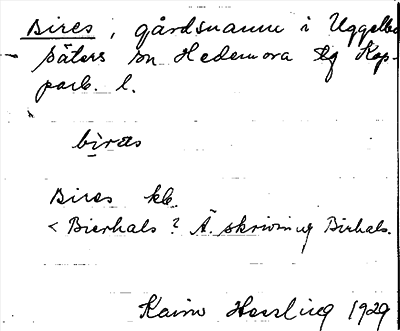 Bires, gårdsnamn i Uggelbo
säters sn Hedemora tg Kop-
parb. l.
biras
Bires kb.
< Bierhals? Ä. skrivning Birhals.
1929